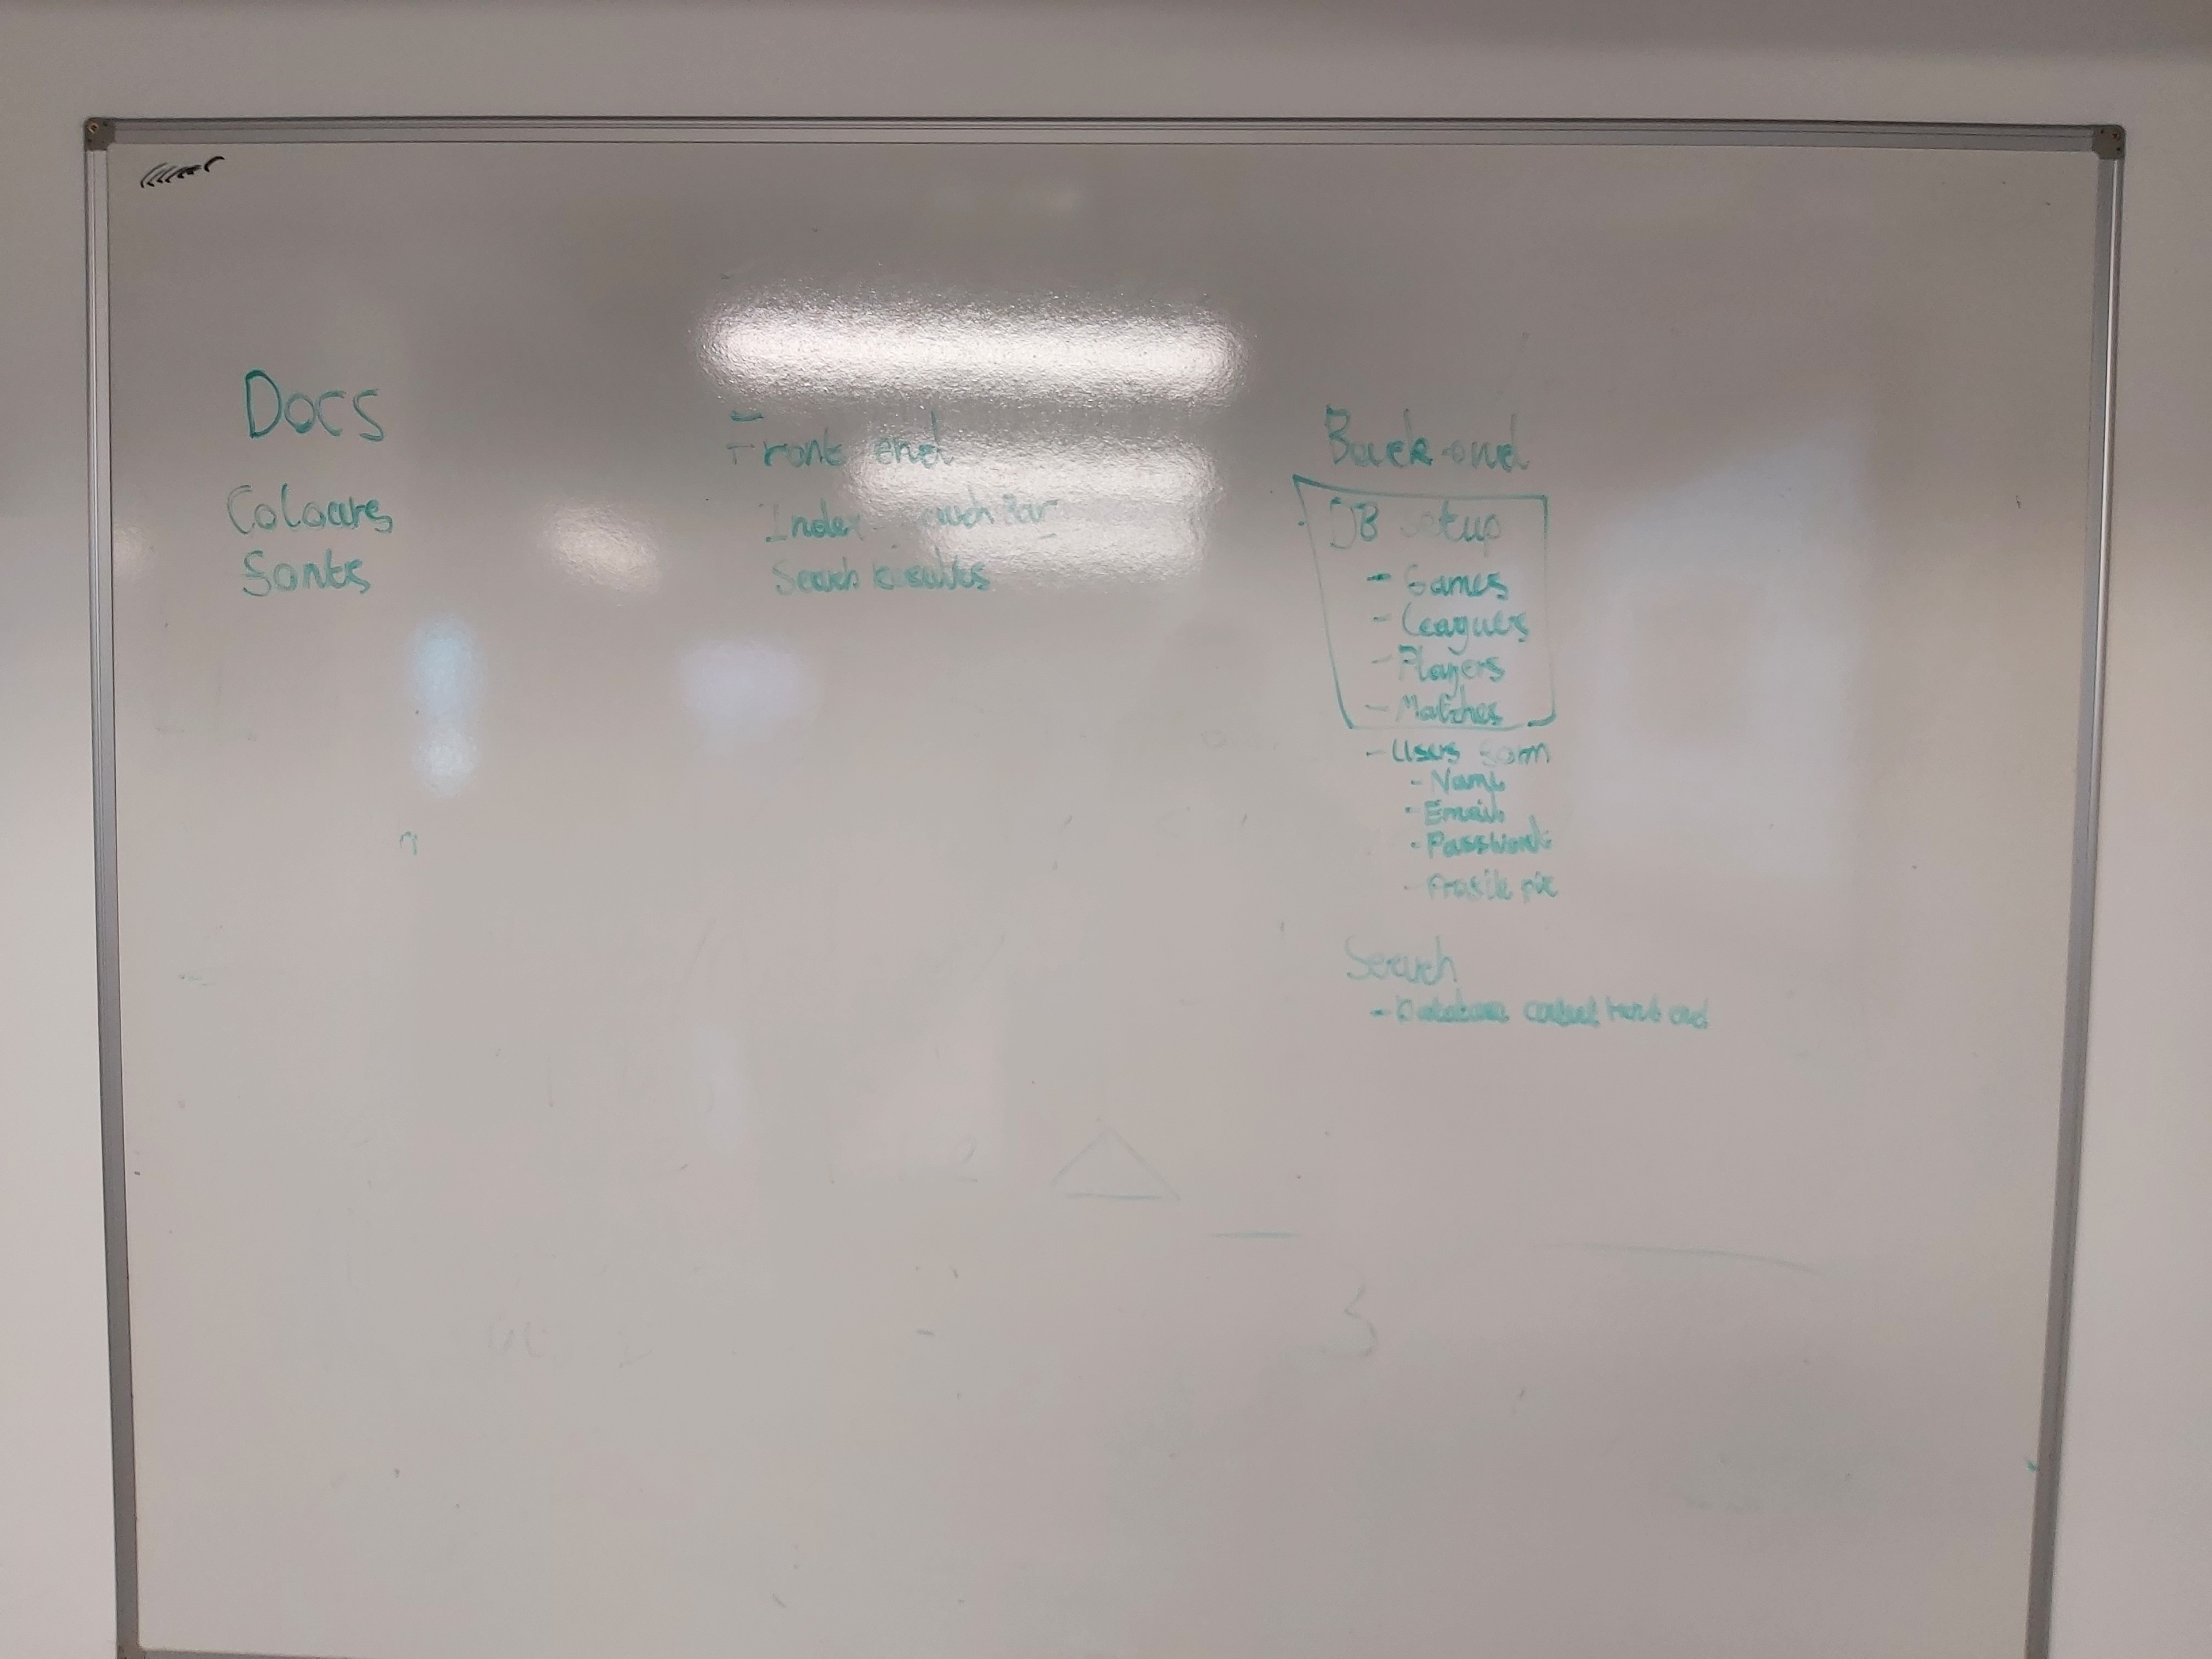 Docs
Colours
Fonts
Front end
Index Search Bar
Search Results
Back end
DB Setup
- Games
- Leagues
- Players
- Matches
- Users form
- Name
- Email
- Password
- Profile pic
Search
- Database front end
3